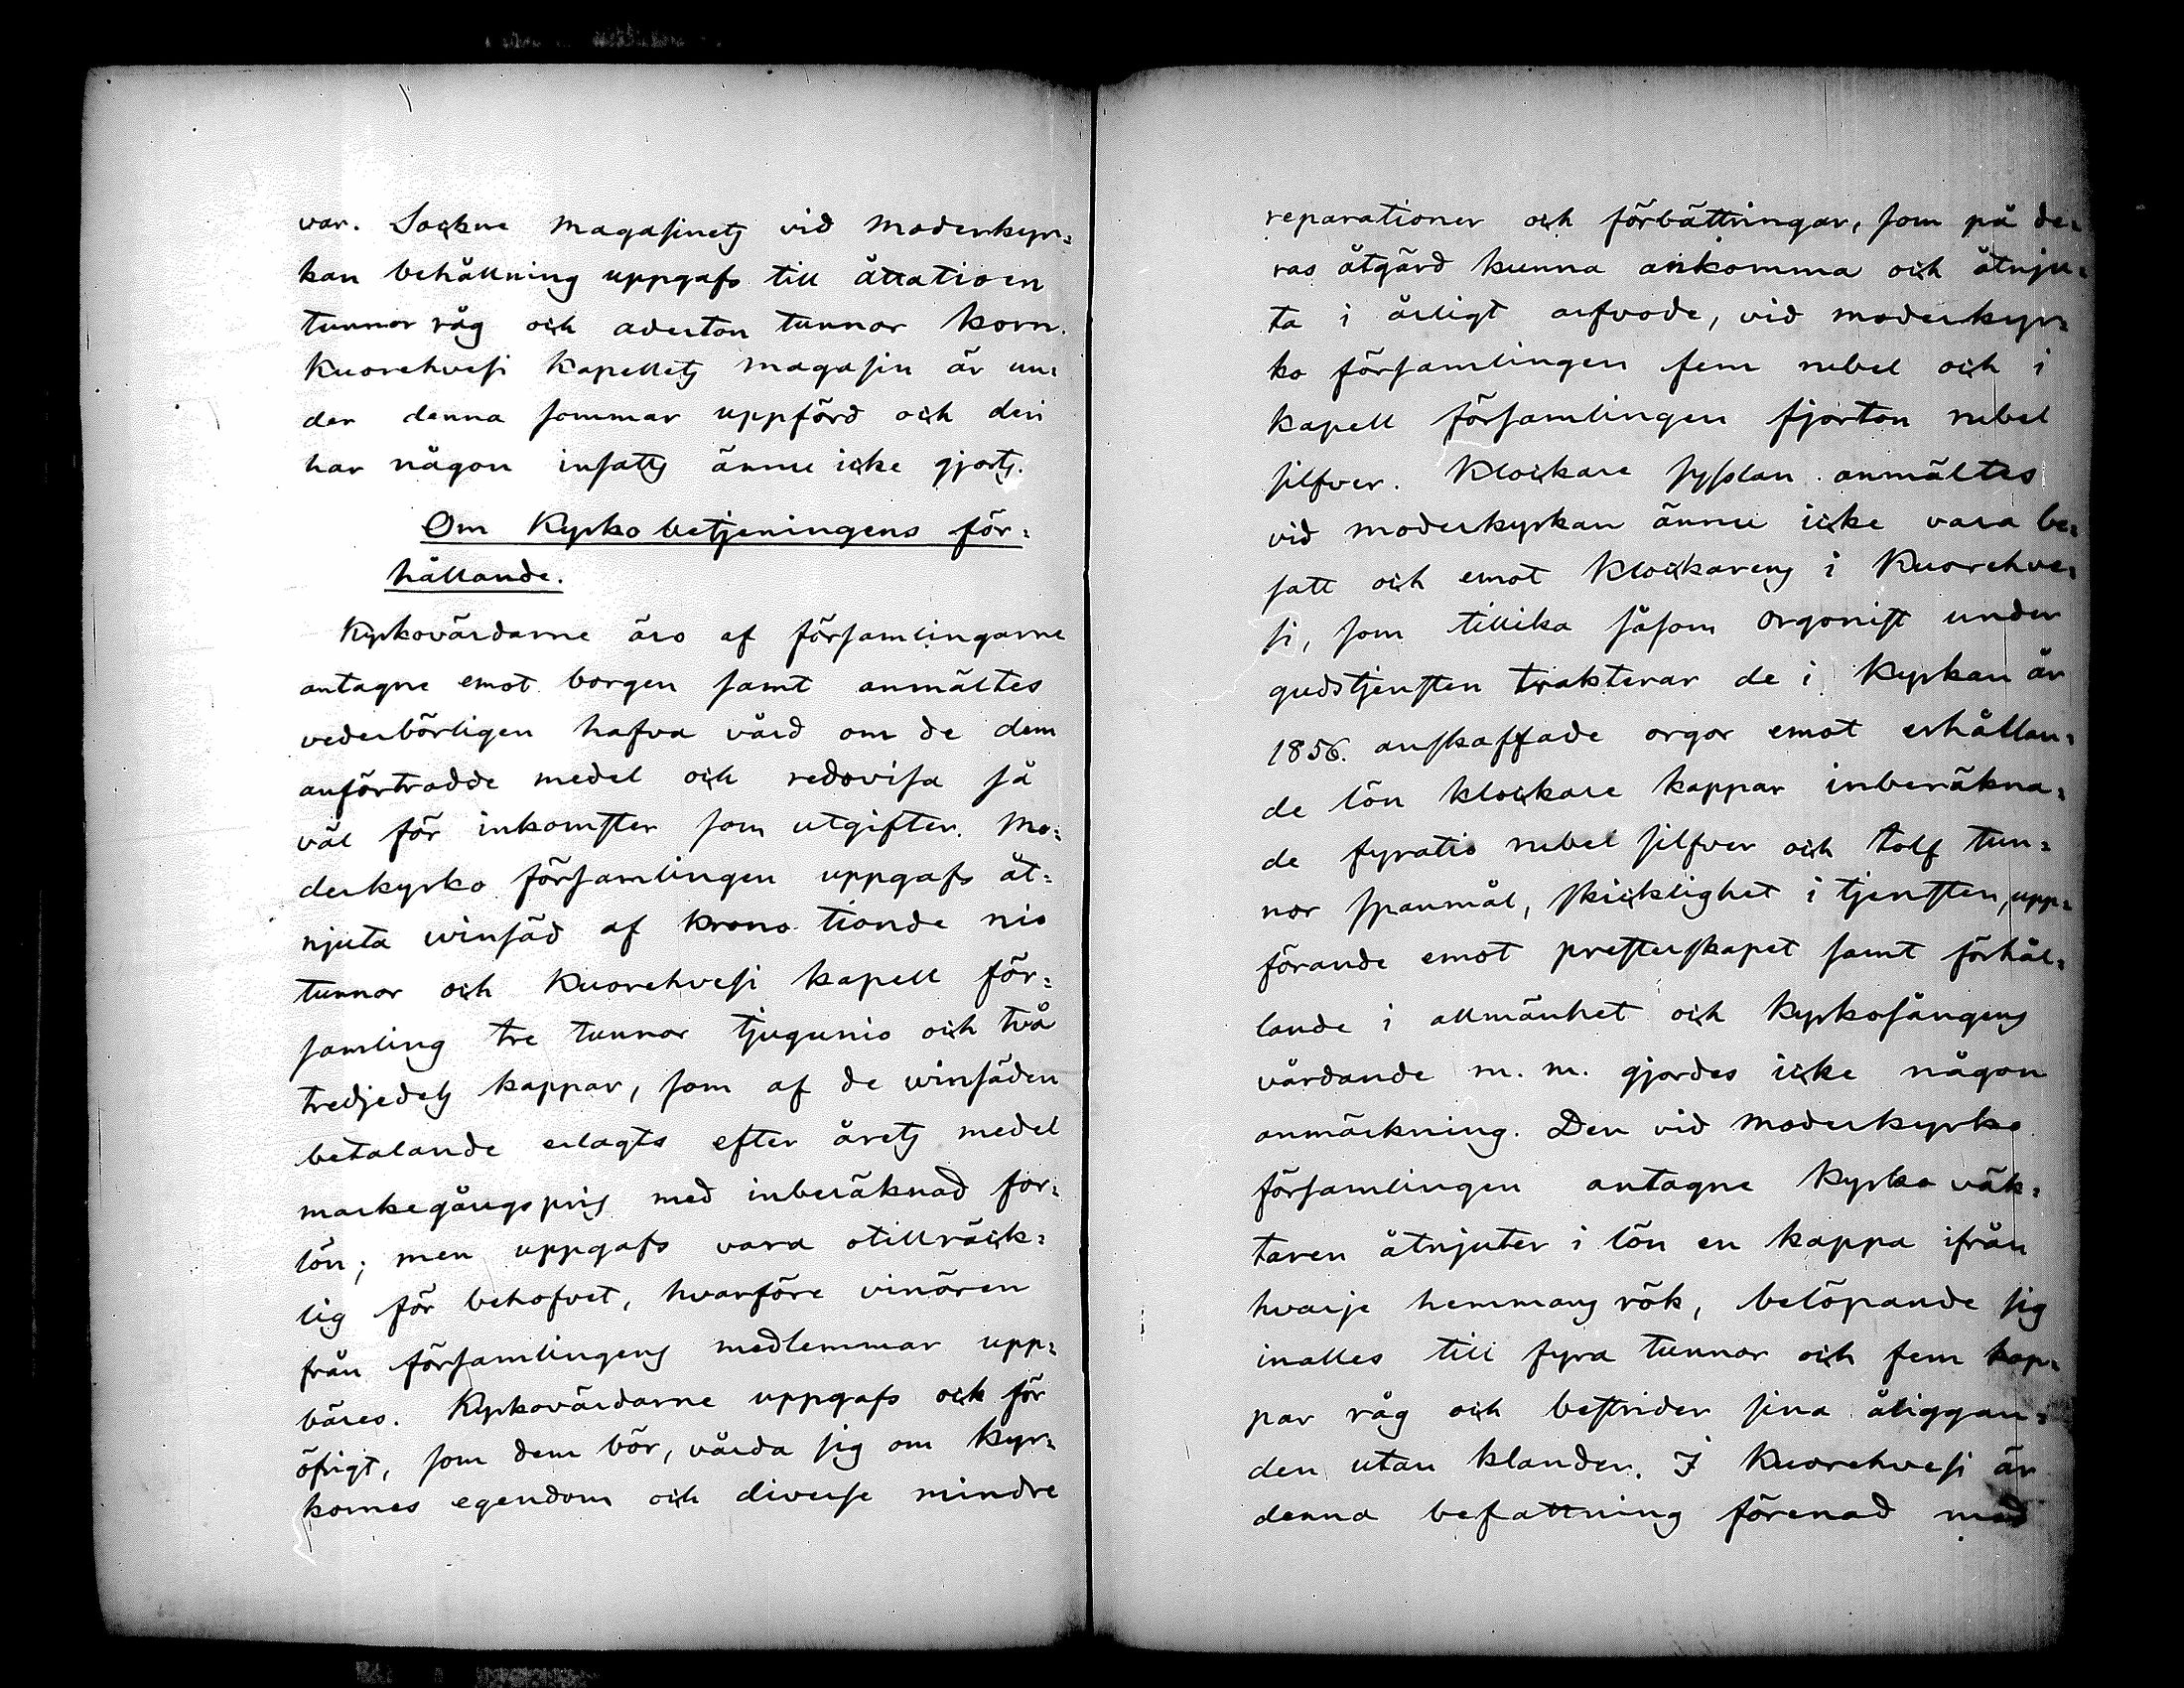 var. Sockne magasinets vid moderkyr-
kan behållning uppgafs till åttatioen
tunnor råg och aderton tunnor korn.
Kuorehvesi kapellets magasin är un-
der denna sommar uppförd och deri
har någon insatts ännu icke gjorts.
Om Kyrkobetjeningens för-
hållande.
Kyrkovärdarne äro af församlingarne
antagne emot borgen samt anmältes
vederbörligen hafva vård om de dem
anförtrodde medel och redovisa så
väl för inkomster som utgifter. Mo-
derkyrko församlingen uppgafs åt-
njuta winsäd af krono tionde nio
tunnor och Kuorehvesi kapell för-
samling tre tunnor tjugunio och två
tredjedels kappar, som af de winsäden
betalande erlagts efter årets medel
markegångspris med inberäknad for-
lön; men uppgafs vara otillräck-
lig för behofvet, hvarföre vinören
från församlingens medlemmar upp-
bäres. Kyrkovärdarne uppgafs ock för
öfrigt, som dem bör, vårda sig om kyr-
kornes egendom och diverse mindre
reparationer och förbättringar, som på de-
ras åtgärd kunna ankomma och åtnju-
ta i årligt arfvode, vid moderkyr-
ko församlingen fem rubel och i
kapell församlingen fjorton rubel
silfver. Klockare sysslan anmältes
vid moderkyrkan ännu icke vara be-
satt och emot klockarens i Kuorehve-
si, som tillika såsom orgonist under
gudstjensten trakterar de i kyrkan år
1856. anskaffade orgor emot erhållan-
de lön klockare kappar inberäkna-
de fyratio rubel silfver och tolf tun-
nor spanmål, skicklighet i tjensten, upp-
förande emot presterskapet samt förhål-
lande i allmänhet och kyrkosångens
vårdande m. m. gjordes icke någon
anmärkning. Den vid moderkyrko
församlingen antagne kyrko väk-
taren åtnjuter i lön en kappa ifrån
hvarje hemmans rök, belöpande sig
inalles till fyra tunnor och fem kap-
par råg och bestrider sina åliggan-
den utan klander. I Kuorehvesi är
denna befattning förenad med